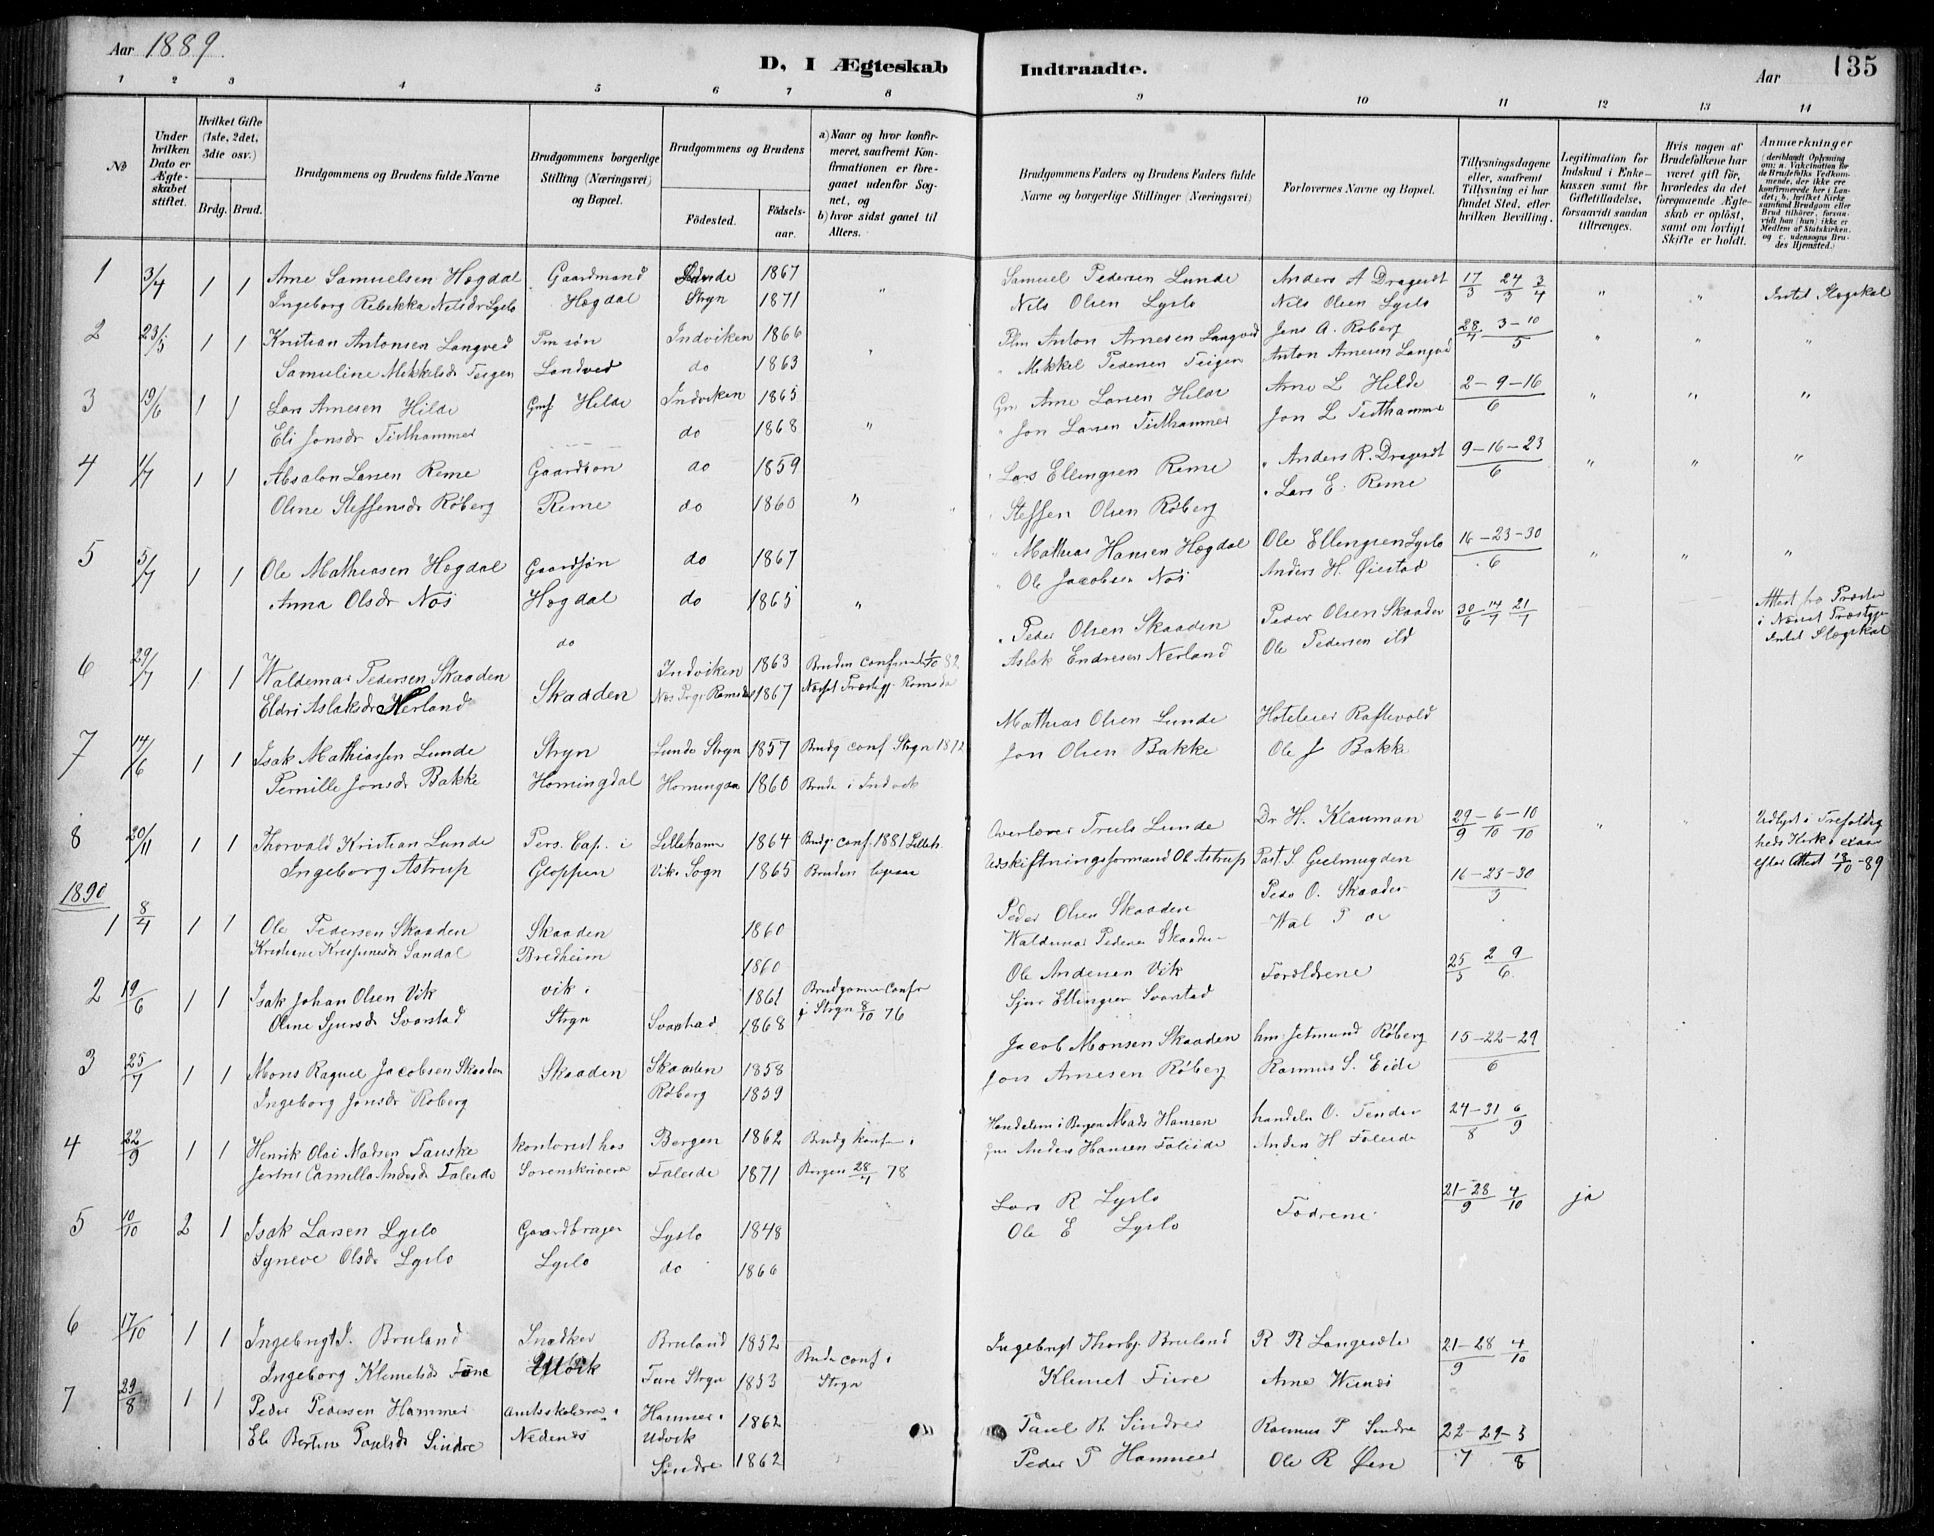 Aar 1889.
D. I Ægteskab Indtraadte.
Aar 135
1 2 3 4 5 6 7 8 9 10 11 12 13 14
No
Under hvilken Dato er Ægteskabet stiftet.
Hvilket Gifte (1ste, 2det, 3die osv.)
Brdg. Brud.
Brudgommens og Brudens fulde Navne
Brudgommens borgerlige Stilling (Næringsvei) og Bopæl.
Brudgommens og Brudens
Födested. Födselsaar.
a) Naar og hvor konfirmeret, saafremt Konfirmationen er foregaaet udenfor Sognet, og
b) hvor sidst gaaet til Alters.
Brudgommens Faders og Brudens Faders fulde Navne og borgerlige Stillinger (Næringsvei)
Forlovernes Navne og Bopæl.
Tillysningsdagene eller, saafremt Tillysning ei har fundet Sted, efter hvilken Bevilling.
Legitimation for Indskud i Enkekassen samt for Giftetilladelse, forsaavidt saadan tiltrænges.
Hvis nogen af Brudefolkene har været gift før, hvorledes da det foregaaende Ægteskab er oplöst, samt om lovligt Skifte er holdt.
Anmærkninger (deriblandt Oplysning om: a. Vakcination for de Brudefolks Vedkommende, der ikke ere konfirmerede her i Landet; b. hvilket Kirkesamfund Brudgom eller Brud tilhörer, forsaavidt han (hun) ikke er Medlem af Statskirken, og c. udensogns Brudes Hjemsted.
1 3/4 1 1 Arne Samuelsen Hegdal Gaardmand Lunde 1867 " Samuel Pedersen Lunde Anders A Dragesdt 17/3 24/3 3/4 " " Intet Slegskab
Ingeborg Rebekka Nilsdr Lyslo Hegdal Stryn 1871 Nils Olsen Lyslo Nils Olsen Lyslo
2 23/5 1 1 Kristian Antonsen Langved Indviken 1866 " Anton Arnesen Langved Jens A. Roberg 28/4 3-10/5 " " "
Samuline Mikkelsdr Teigen Landved do 1863 Mikkel Pedersen Teigen Anton Arnesen Langved
3 19/6 1 1 Lars Arnesen Hilde Gmf Hilde Indviken 1865 Gm Arne Larsen Hilde Arne L Hilde 2-9-16/6 " " "
Eli Jonsdr Tisthammer do 1868 " " Jon Larsen Tisthammer Jon L Tisthammer
4 1/7 1 1 Absalon Larsen Reme Gaardsøn do 1859 " Lars Ellingsen Reme " Anders R. Dragesdt 9-16-23/6 " " "
Oline Steffensdr Røberg Reme do 1860 " Steffen Olsen Røberg " Lars E. Reme
5 5/7 1 1 Ole Mathiasen Hegdal Gaardsøn do 1867 " Mathias Hansen Hegdal Ole Ellingsen Lyslo 16-23-30/6 " " "
Anna Olsdr Nos Hegdal do 1865 " " Ole Jacobsen Nos Anders H. Øiestad
do
6 29/7 1 1 Waldemar Pedersen Skaaden Skaaden Indviken 1863 Bruden confirmert 1/10 82 " Peder Olsen Skaaden Peder Olsen Skaaden 30/6 14/7 21/7 Attest fra Præsten i Nesset Præstegj. Intet Slegskab
Eldri Aslaksdr Nerland 1867 Nesset Præstgj. Romsda Aslak Endresen Nerland Ole Pedersen
7 14/6 1 1 Isak Mathiassen Lunde Stryn Lunde Stryn 1857 Brudg conf Stryn 1872 Mathias Olsen Lunde Hoteleier Raftevold
Pernille Jonsdr Bakke Horningdal Horningda 1860 Brude i Indvik Jon Olsen Bakke Ole J Bakke
8 20/11 1 1 Thorvald Kristian Lunde Pers. Cap. i Lillehamr 1864 Brudg. conf. 1881 Lilleh. Overlærer Truls Lunde Dr H. Klauman 29/9 -6/10 -10/10 " "
Ingeborg Astrup Gloppen Vik. Sogn 1865 Bruden Udskiftningsformand Ol Astrup Past S Gielmugden efter Attest 18/10 -89
1890
1 8/4 1 1 Ole Pedersen Skaaden Skaaden 1860 Peder Olsen Skaaden Peder O. Skaaden 16-23-30/3
Kristiane Sandal Bredheim 1860 Waldemar Pedersen Skaaden Wal P
2 19/6 1 1 Isak Johan Olsen Vik Vik i 1861 Brudgomme confr Ole Andersen Vik Foreldrene 25/5 2 9/6
Oline Sjursdr Svorstad Stryn Svorstad 1868 i Stryn 8/10 76 Sjur Ellingsen Svorstad
3 25/7 1 1 Mons Raguel Jacobsen Skaaden Skaaden Skaaden 1858 Jacob Monsen Skaaden hm. Jetmund Røberg 15-22-29/6
Ingeborg Jonsdr Røberg Røberg 1859 Jon Arnesen Røberg Rasmus S. Eide
4 22/9 1 1 Henrik Olai Madsen Fauske kontorist hos Bergen 1862 Brudg konfr i Handelsm i Bergen Mads Hansen handelm O. Tenden 24-31/8 6/9
Jertru Camilla Andersd Faleide Sorenskrivera Faleide 1871 Bergen 28/4 78 Gm Anders Hansen Faleide Anders H Faleide
5 10/10 2 1 Isak Larsen Lyslo Gaardbruger Lyslo 1848 Lars R Lyslo Fædrene 21-28/9 4/10 ja
Syneve Olsdr Lyslo Lyslo do 1866 Ole E Lyslo
6 17/10 1 1 Ingebrigt I. Bruland Snedker Bruland 1852 Brude conf i Ingebrigt Thorbj. Bruland R R Langesæte 21-28/9 4/10
Ingeborg Klemetsdr Fure Utvik Fure Stryn 1853 Stryn Klemet Fure Arne
7 29/8 1 1 Peder Pedersen Hammer Amtsskolerer i Hammer i Udvik 1862 Paul R. Sindre Rasmus P Sindre 22-29/7 -3/8
Eli Bertine Paulsdr Sindre Nedenes Sindre 1862 Peder P Hammer Ole R Øen